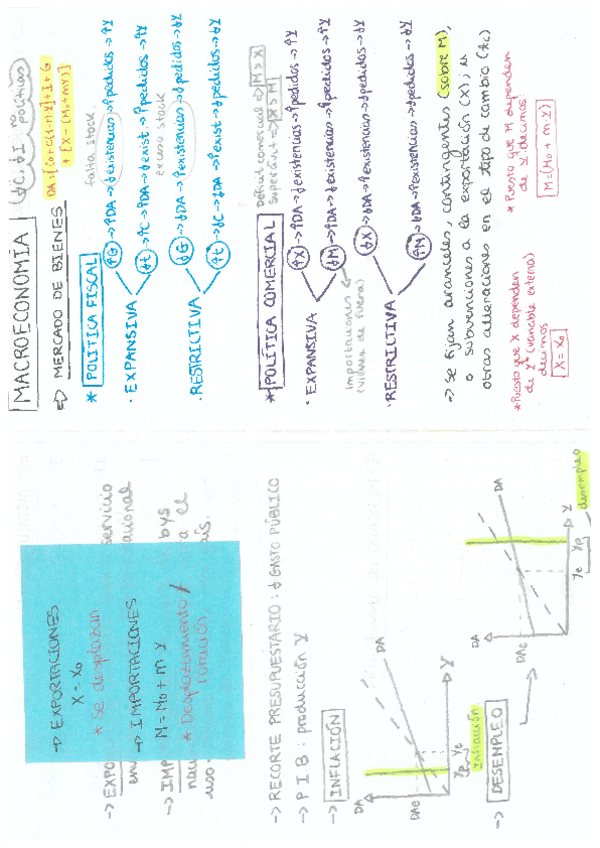 MACROECONOMÍA
(↓C, ↓I no políticas)
⇒ MERCADO DE BIENES
DA:[Co+c(1-t)·Y]+I+G
+[X-(Mo+mY)]
* POLÍTICA FISCAL
falta stock
· EXPANSIVA
↑G → ↑DA → ↓existencias → ↑pedidos → ↑Y
↓t → ↑C → ↑DA → ↓exist. → ↑pedidos → ↑Y
exceso stock
· RESTRICTIVA
↓G → ↓DA → ↑existencias → ↓pedidos → ↓Y
↑t → ↓C → ↓DA → ↑exist → ↓pedidos → ↓Y
* POLÍTICA COMERCIAL
Déficit comercial ⇒ M > X
Superávit ⇒ X > M
· EXPANSIVA
↑X → ↑DA → ↓existencias → ↑pedidos → ↑Y
↓M → ↑DA → ↓existencias → ↑pedidos → ↑Y
Importaciones
(vienen de fuera)
· RESTRICTIVA
↓X → ↓DA → ↑existencias → ↓pedidos → ↓Y
↑M → ↓DA → ↑existencias → ↓pedidos → ↓Y
→ Se fijan aranceles, contingentes (sobre M),
o subvenciones a la exportación (X); u
otras alteraciones en el tipo de cambio (tc)
* Puesto que X dependen
de Y* (variable externa)
decimos
X = Xo
* Puesto que M dependen
de Y, decimos:
M=(Mo + m·Y)
→ EXPO
servicio
en
nacional
→ IMP
bys
na
a el
uso
país.
→ EXPORTACIONES
X = Xo
* Se desplazan
→ IMPORTACIONES
M = Mo + m·Y
* Desplazamiento /
rotación
→ RECORTE PRESUPUESTARIO: ↓ GASTO PÚBLICO
→ PIB: producción Y
→ INFLACIÓN
DA
DA
DAe
Yp Ye
Y
Inflación
→ DESEMPLEO
DA
DA
DAe
Ye Yp
Y
desempleo